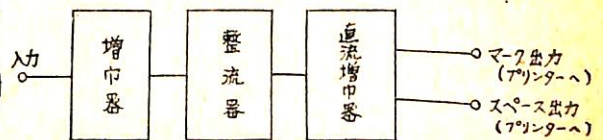 入力
増巾器
整流器
直流増巾器
マーク出力
(プリンターへ)
スペース出力
(プリンターへ)